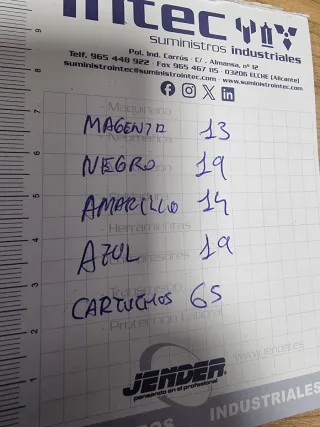 intec
suministros industriales
Pol. Ind. Carrús · C/. Almansa, nº 12
Telf. 965 448 922 · Fax 965 467 115 · 03206 ELCHE (Alicante)
suministrointec@suministrointec.com · www.suministrointec.com
Maquinaria
MAGENTA 13
Neumática
NEGRO 19
AMARILLO 14
Herramientas
AZUL 19
CARTUCHOS 65
Protección Laboral
www.jender.es
JENDER
pensando en el profesional
INDUSTRIALES